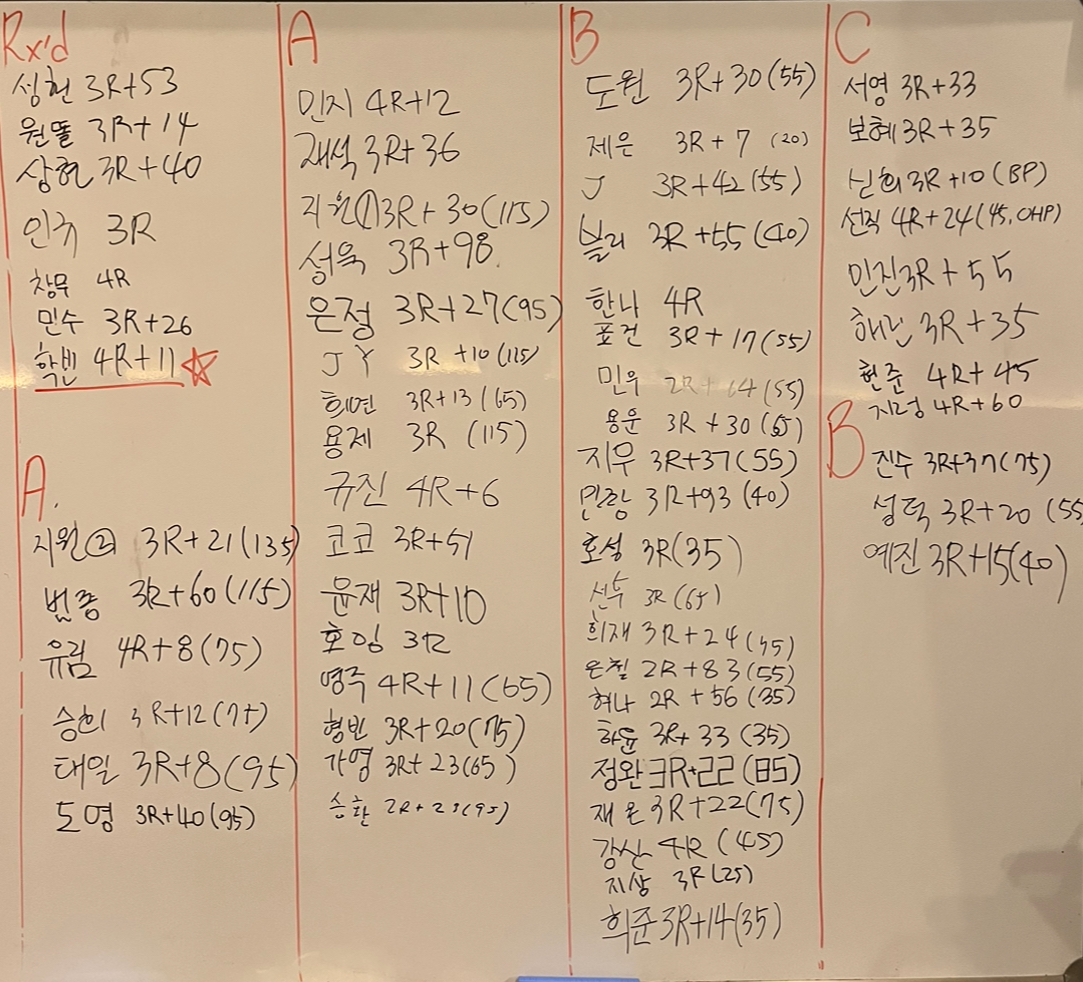 Rx'd
성헌 3R+53
원똘 3R+14
상현 3R+40
인규 3R
창무 4R
민수 3R+26
학빈 4R+11 ☆
A.
지원② 3R+21(135)
범종 3R+60(115)
유림 4R+8(75)
승희 3R+12(75)
태일 3R+8(95)
도영 3R+40(95)
A
민지 4R+12
재석 3R+36
지원① 3R+30(115)
성욱 3R+98
은정 3R+27(95)
JY 3R+10(115)
희연 3R+13(65)
용제 3R (115)
규진 4R+6
코코 3R+51
윤재 3R+10
호잉 3R
영주 4R+11(65)
형빈 3R+20(75)
가영 3R+23(65)
승환 2R+23(95)
B
도원 3R+30(55)
제은 3R+7 (20)
J 3R+42(55)
블리 3R+55(40)
한나 4R
표건 3R+17(55)
민우 2R+64(55)
용운 3R+30(65)
지우 3R+37(55)
민랑 3R+93(40)
호성 3R(35)
선우 3R(65)
희재 3R+24(45)
은칠 2R+83(55)
혀나 2R+56(35)
하윤 3R+33(35)
정완 3R+22(85)
재은 3R+22(75)
강산 4R(45)
지상 3R(25)
희준 3R+14(35)
C
서영 3R+33
보혜 3R+35
신희 3R+10(BP)
선직 4R+24(45, OHP)
민진 3R+55
3R+35
현준 4R+45
지정 4R+60
B
진수 3R+37(75)
성덕 3R+20(55
예진 3R+15(40)